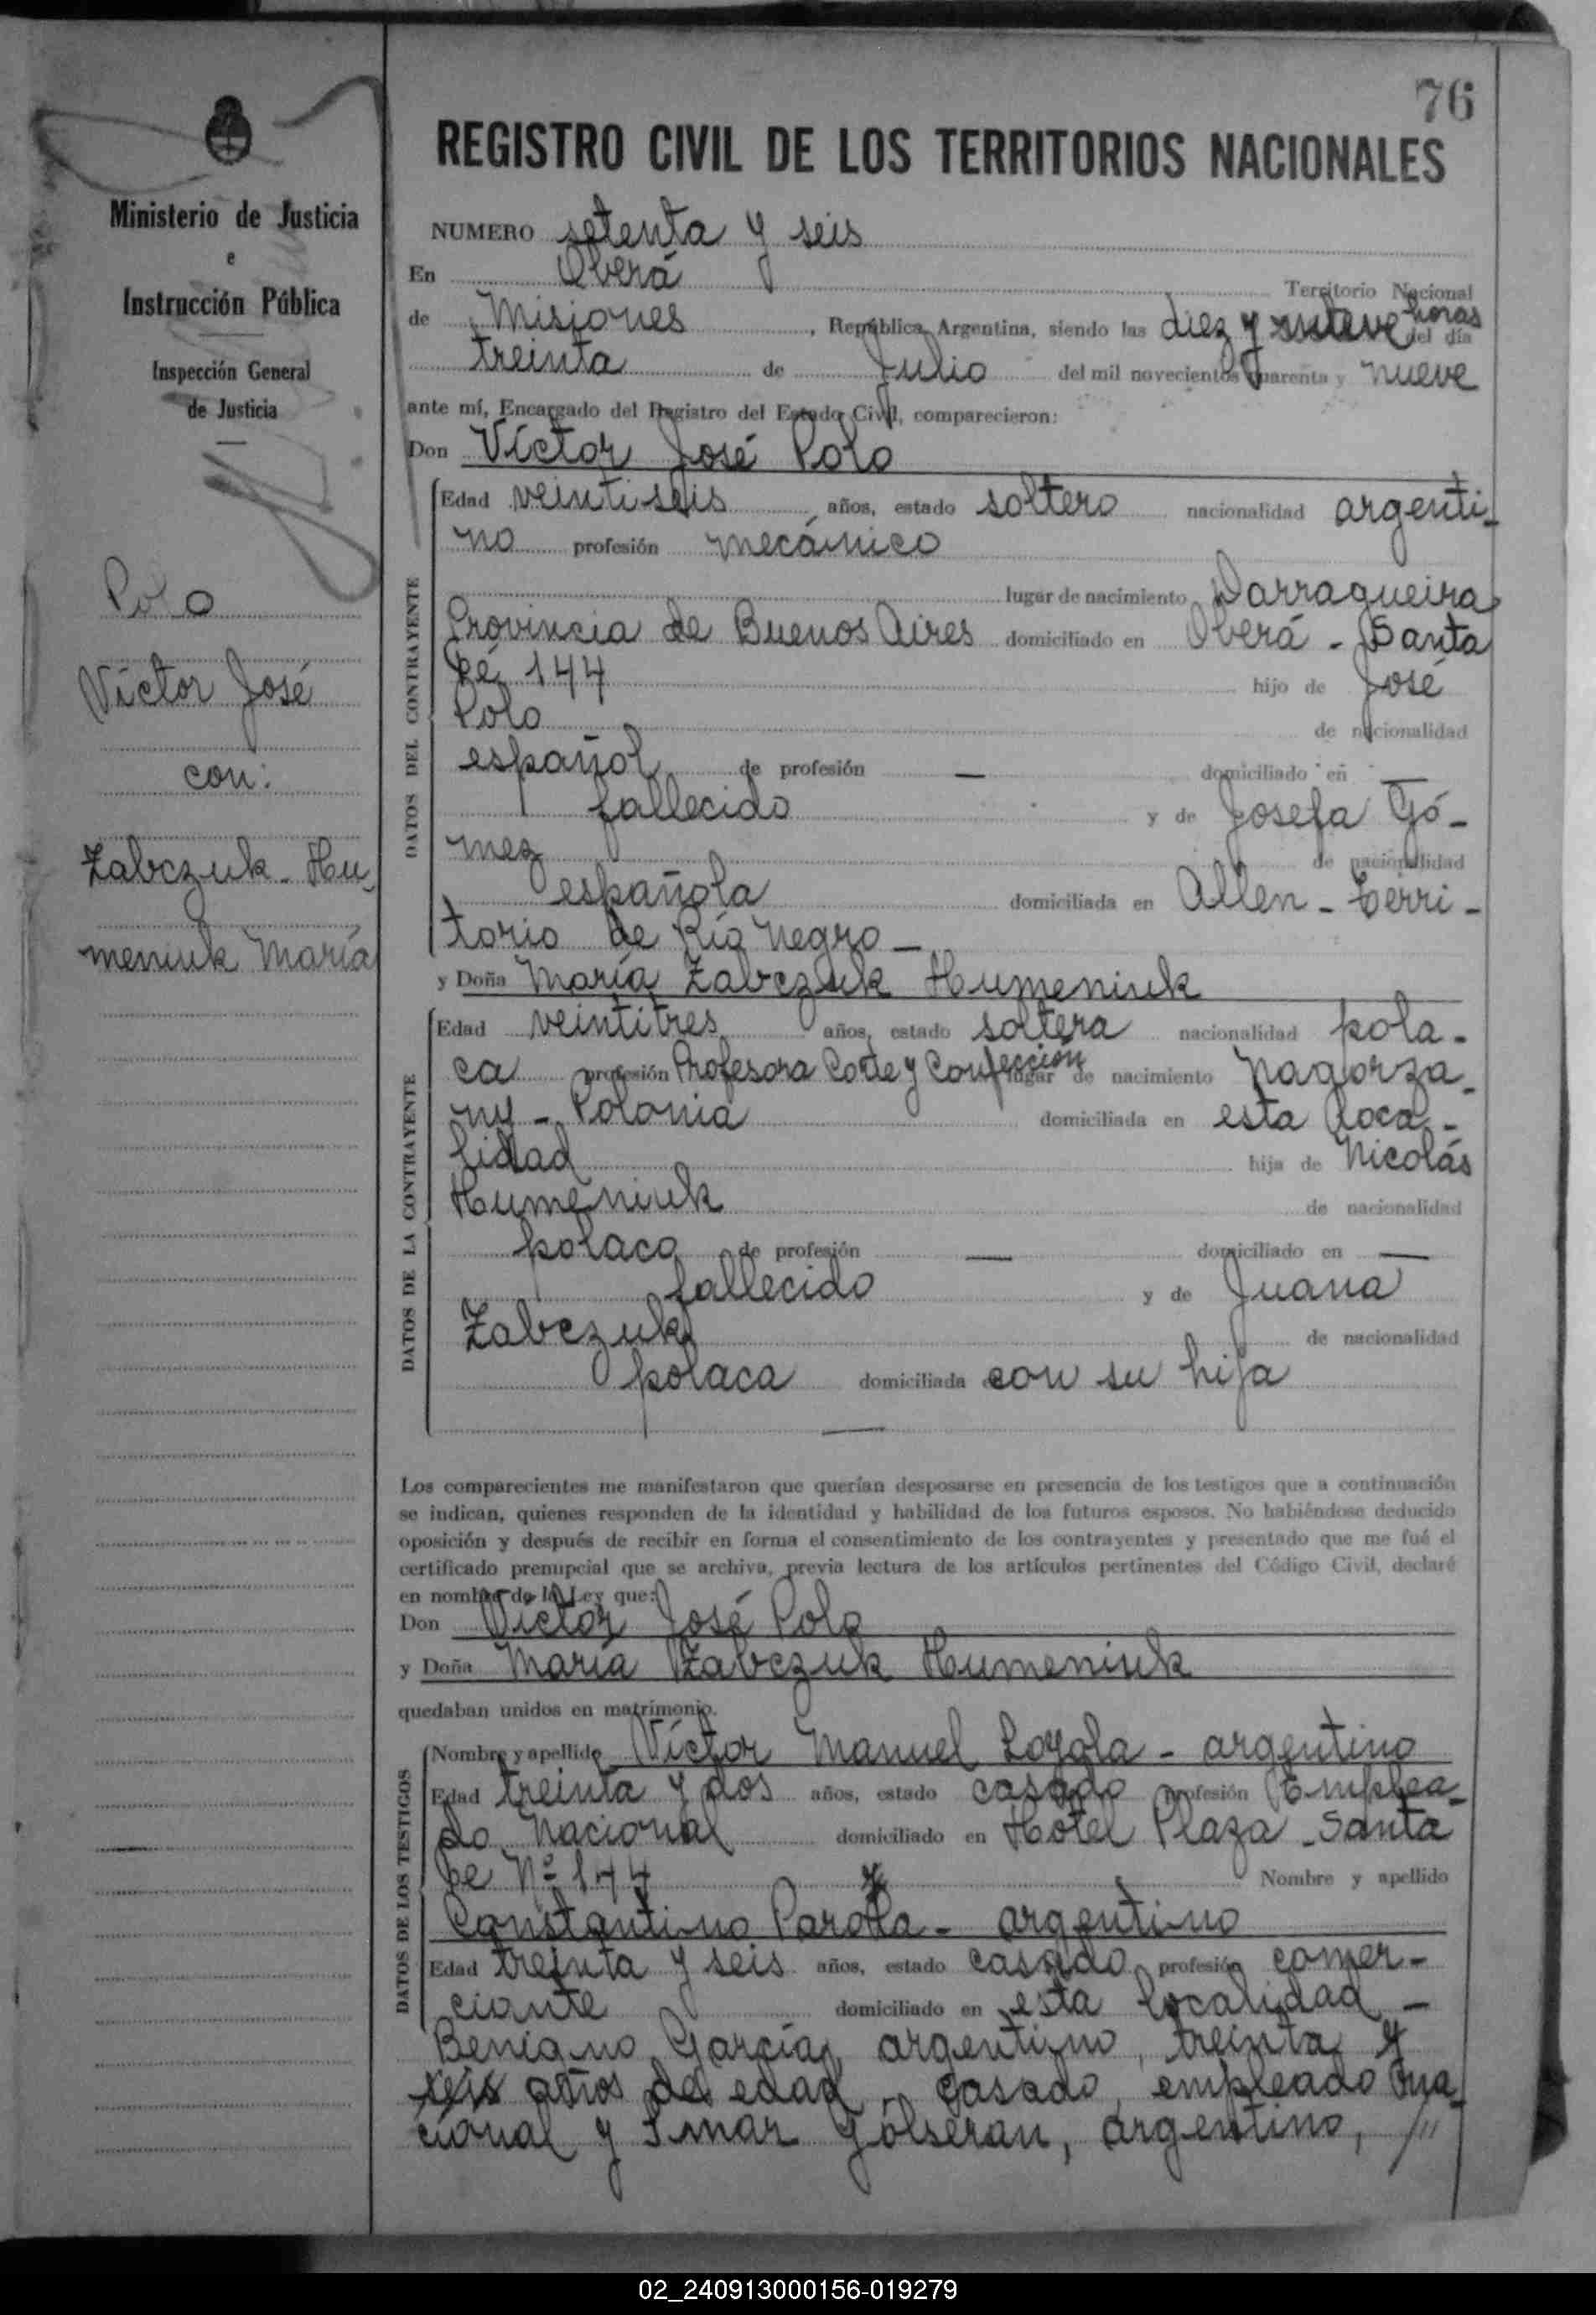 76
REGISTRO CIVIL DE LOS TERRITORIOS NACIONALES
Ministerio de Justicia
e
Instrucción Pública
Inspección General
de Justicia
Polo
Víctor José
con:
Zabczuk - Hu-
meniuk María
NUMERO setenta y seis
En Oberá Territorio Nacional
de Misiones, República Argentina, siendo las diez y nueve horas del día
treinta de Julio del mil novecientos cuarenta y nueve
ante mí, Encargado del Registro del Estado Civil, comparecieron:
Don Víctor José Polo
DATOS DEL CONTRAYENTE
Edad veintiseis años, estado soltero nacionalidad argenti-
no profesión mecánico
lugar de nacimiento Darraqueira
Provincia de Buenos Aires domiciliado en Oberá - Santa
Fé 144 hijo de José
Polo de nacionalidad
español de profesión — domiciliado en —
fallecido y de Josefa Gó-
mez de nacionalidad
española domiciliada en Allen - Terri-
torio de Río Negro -
y Doña María Zabczuk Humeniuk
DATOS DE LA CONTRAYENTE
Edad veintitres años, estado soltera nacionalidad pola-
ca profesión Profesora Corte y Confección lugar de nacimiento Nagorza-
ny - Polonia domiciliada en esta loca-
lidad hija de Nicolás
Humeniuk de nacionalidad
polaco de profesión — domiciliado en —
fallecido y de Juana
Zabczuk de nacionalidad
polaca domiciliada con su hija
—
Los comparecientes me manifestaron que querían desposarse en presencia de los testigos que a continuación
se indican, quienes responden de la identidad y habilidad de los futuros esposos. No habiéndose deducido
oposición y después de recibir en forma el consentimiento de los contrayentes y presentado que me fué el
certificado prenupcial que se archiva, previa lectura de los artículos pertinentes del Código Civil, declaré
en nombre de la Ley que:
Don Víctor José Polo
y Doña María Zabczuk Humeniuk
quedaban unidos en matrimonio.
DATOS DE LOS TESTIGOS
Nombre y apellido Víctor Manuel Loyola - argentino
Edad treinta y dos años, estado casado profesión Emplea-
do Nacional domiciliado en Hotel Plaza - Santa
Fe Nº 144 Nombre y apellido
Constantino - argentino
Edad treinta y seis años, estado casado profesión comer-
ciante domiciliado en esta localidad -
Benigno García, argentino, treinta y
seis años de edad, casado, empleado na-
cional y argentino, //
02_240913000156-019279